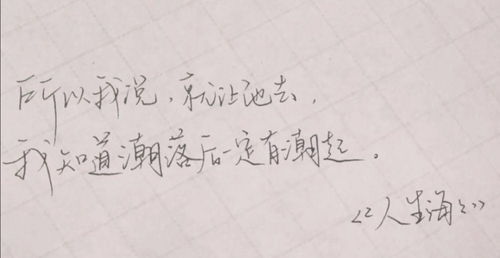 所以我说，就让他去，
我知道潮落后一定有潮起。
《人生海》